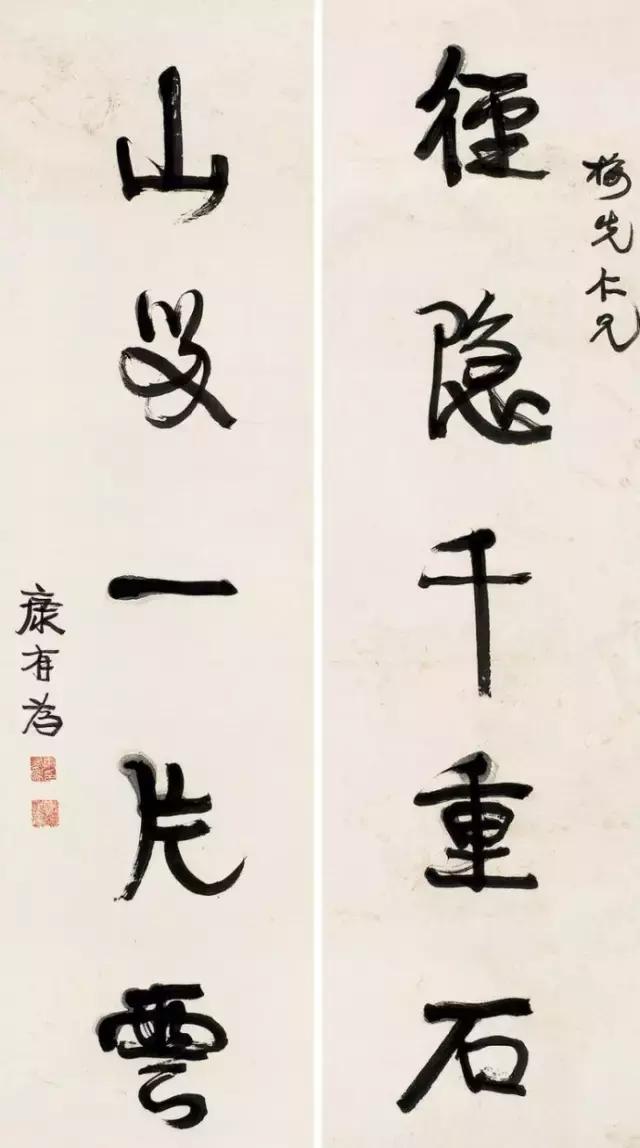 梅先仁兄
徑隱千重石
山一片雲
康有為